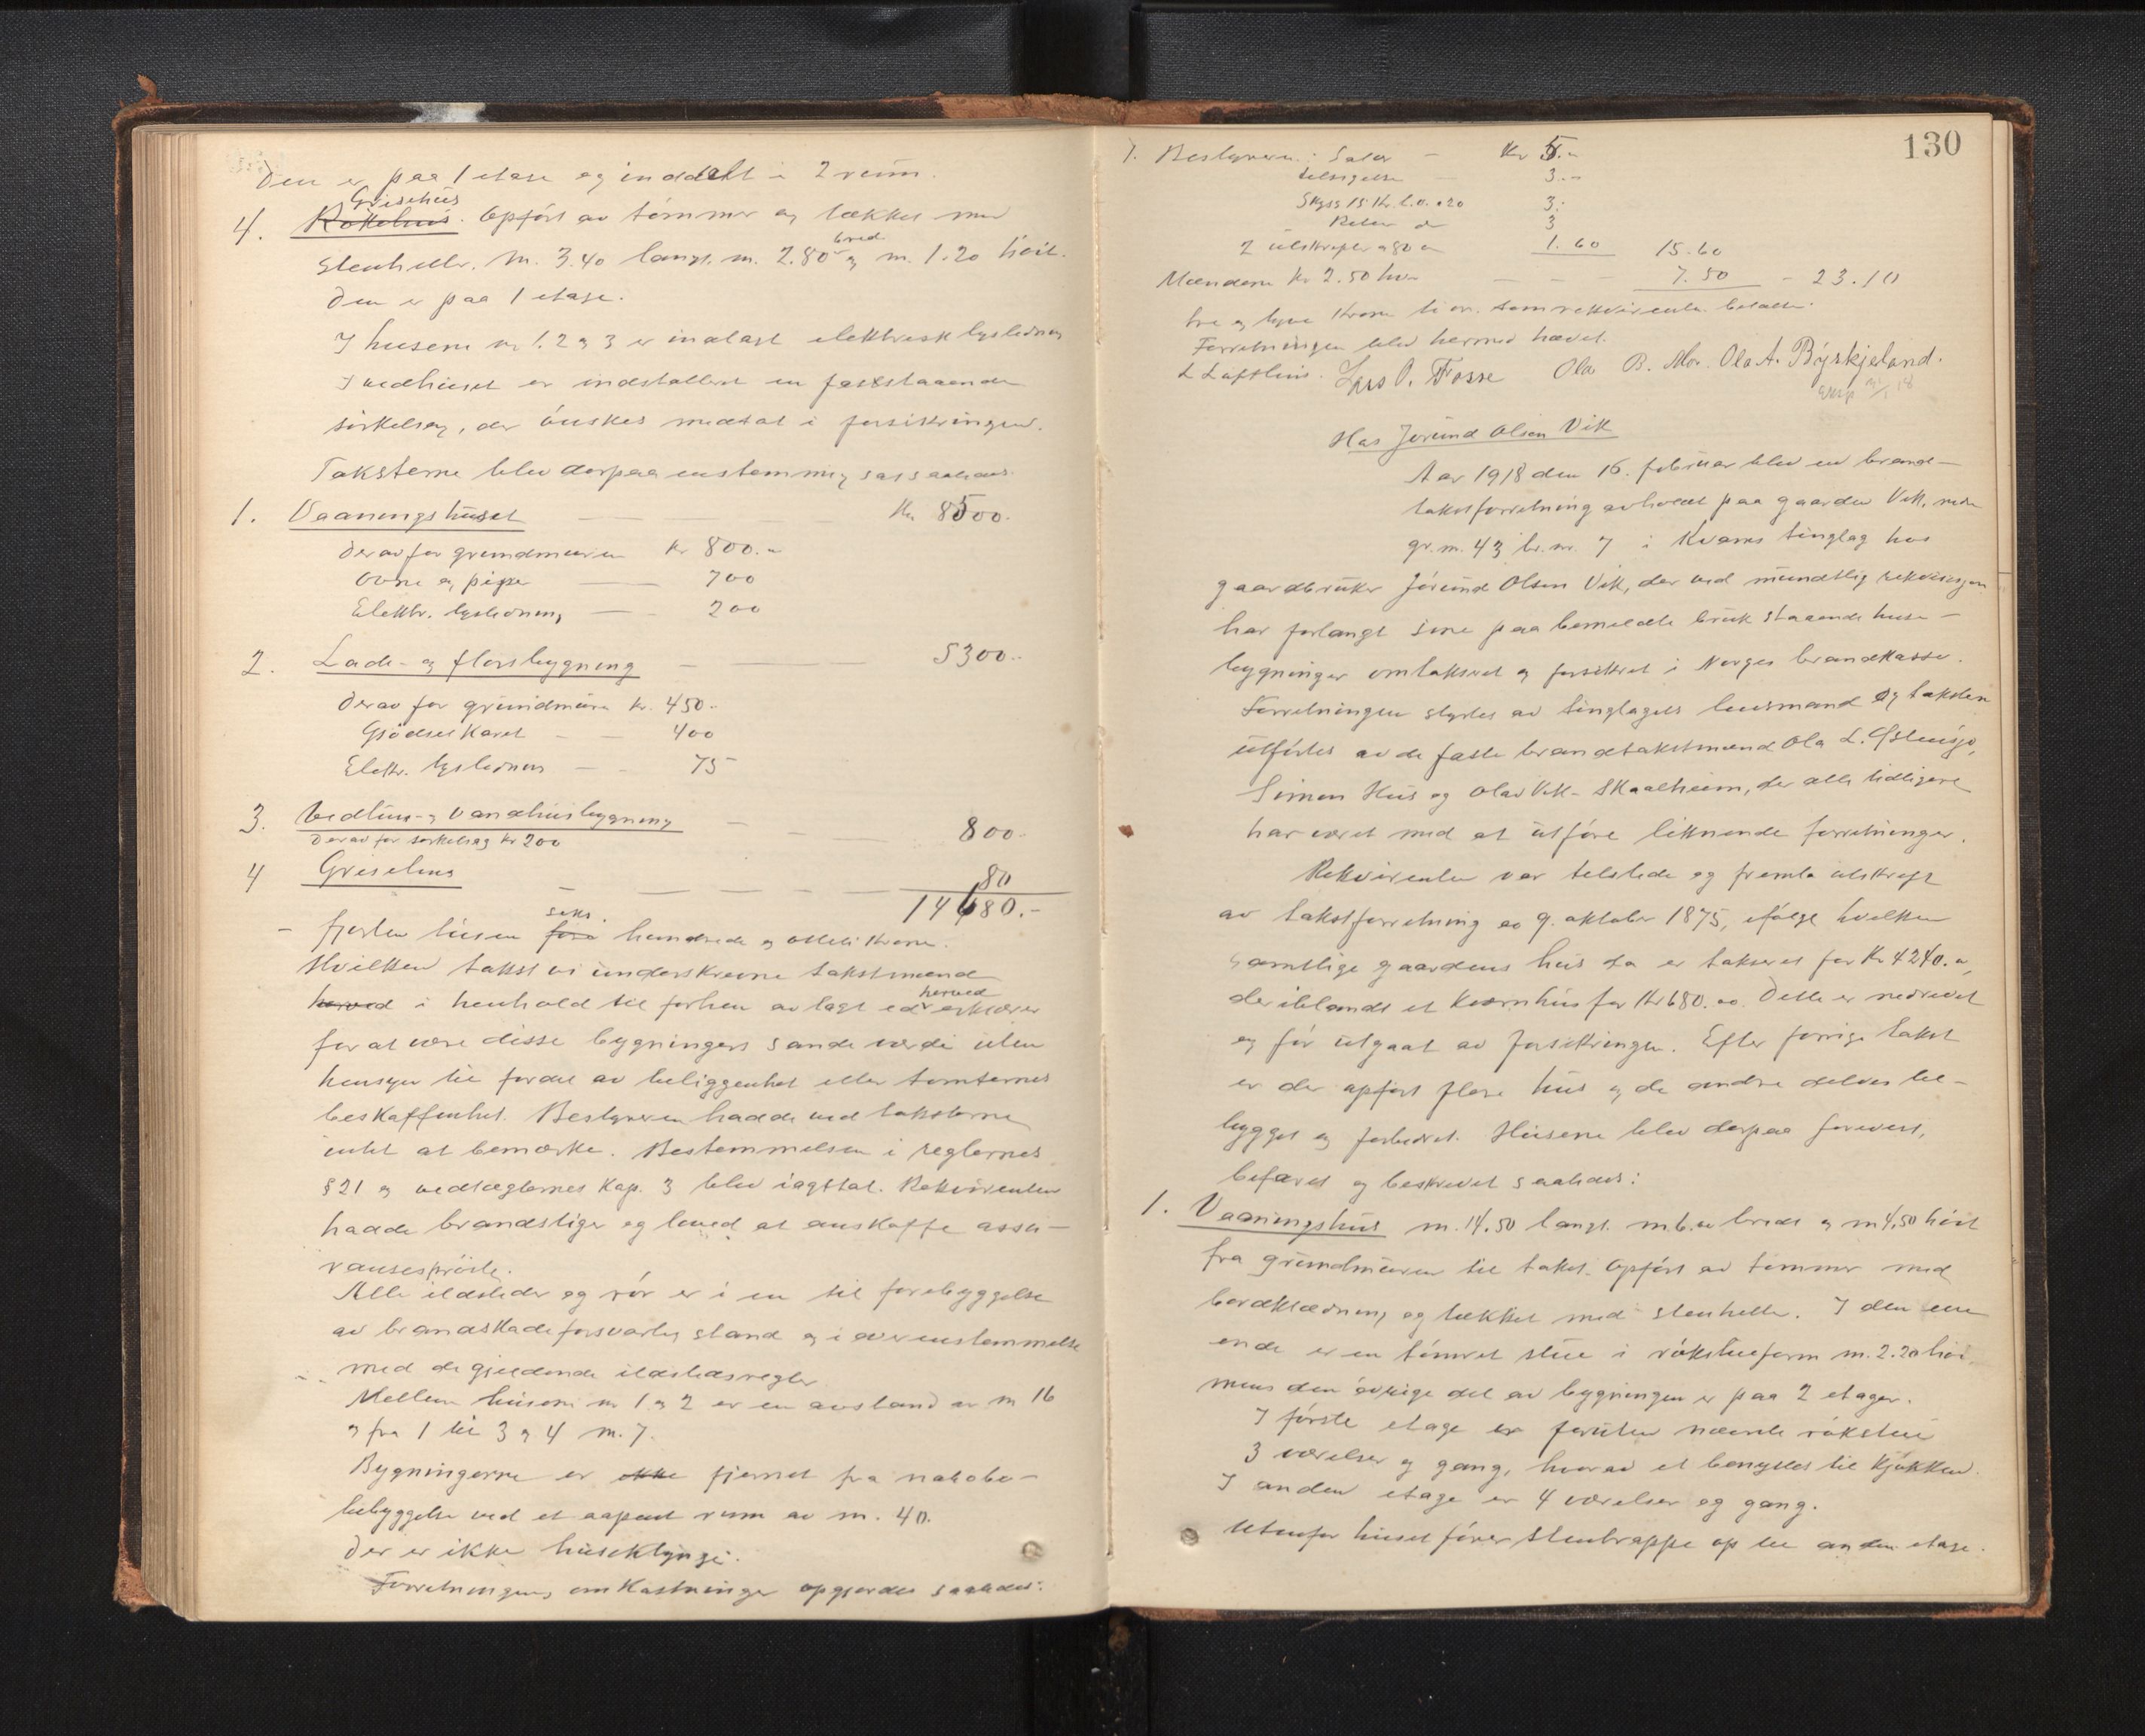 Den er paa 1 etase og inddelt i 2 rum.
Grisehus
4. Rökehus. Opfört av tömmer og tækket med
bred
Stenheller. M. 3.40 langt, m. 2.80 og m. 1.20 höit.
Den er paa 1 etase.
I husene nr 1. 2 og 3 er indlagt elektrisk lysledning
I vedhuset er indstallert en faststaaende
sirkelsag, der önskes medtat i forsikringen.
Taksterne blev derpaa enstemmig sat saaledes:
1. Vaaningshuset Kr 8500.
Derav for grundmuren Kr 800.-
Ovne og pipe 700
Elektr. lysledning 200
2. Lade- og florsbygning 5300.-
Derav for grundmüren kr. 450.-
Gjödselkaret 400
Elektr. lysledning 75
3. Vedhus- og Vandhusbygning 800.-
Derav for sirkelsag kr 200
4 Grisehus 80
14680.-
seks
- fjorten tusen fem hundrede og otteti Kroner.
Hvilken takst vi underskrevne takstmænd
herved
herved i henhold til forhen avlagt ed erklærer
for at være disse bygningers sande værdi uten
hensyn til fordel av beliggenhet eller tomternes
beskaffenhet. Bestyreren hadde ved taksterne
intet at bemærke. Bestemmelsen i reglernes
§21 og vedtægternes Kap. 3 blev iagttat. Rekvirenten
hadde brandstiger og loved at anskaffe assu-
ransespröite.
Alle ildsteder og rör er i en til forebyggelse
av brandskade forsvarlig stand og i overenstemmelse
med de gjældende ildstedsregler
Mellem husene nr 1 og 2 er en avstand av m 16
og fra 1 til 3 og 4 m. 7.
Bygningerne er ikke fjernet fra nabobe-
bebyggelse ved et aapent rum av m. 40.
Der er ikke huseklynge.
Forretningens omkostninger opgjordes saaledes:
130
7. Bestyreren: Salær Kr 5.-
tilsigelse 3.-
Skyss 15 Km. l.v. a 20 3:
Retur do 3
2 utskrifter a 80 ö 1.60 15.60
Mændene Kr 2.50 hver 7.50 - 23.10
tre og tyve Kroner ti öre. som rekvirenten betalte.
Forretningen blev hermed hævet.
L Lofthus. Lars O. Fosse Ola B. Mo. Ola A. Byrkjeland.
Hos Jörund Olsen Vik
Aar 1918 den 16. februar blev en brand-
takstforretning avholdt paa gaarden Vik,
gr.nr. 43 br.nr. 7 i Kvams tinglag hos
gaardbruker Jörund Olsen Vik, der ved mundtlig rekvisisjon
har forlangt sine paa bemeldte bruk staaende huse-
bygninger omtaksert og forsikret i Norges brandkasse.
Forretningen styrtes av tinglagets lensmand og taksten
utförtes av de faste brandtakstmænd Ola L. Östensjö,
Simon Hus og Olav Vik-Skaalheim, der alle tidligere
har været med at utföre liknende forretninger.
Rekvirenten var tilstede og fremla utskrift
av takstforretning av 9. oktober 1875, ifölge hvilken
samtlige gaardens hus da er taksert for Kr 4240.-
deriblandt et kvernhus for Kr 680.00. Dette er nedrevet
og för utgaat av forsikringen. Efter forrige takst
er der opfört flere hus og de andre delvis til-
bygget og forbedret. Husene blev derpaa forevist,
befaret og beskrevet saaledes:
1. Vaaningshus m. 14.50 langt. m. 6.00 bredt og m 4,50 höit
fra grundmuren til taket. Opfört av tömmer med
bordklædning og tækket med stenheller. I den ene
ende er en tömret stue i rökstueform m. 2.20 höi,
mens den övrige del av bygningen er paa 2 etager.
I förste etage er foruten nævnte rökstue
3 værelser og gang, hvorav et benyttes til Kjökken.
I anden etage er 4 værelser og gang.
Utenfor huset förer stentrappe op til anden etage.